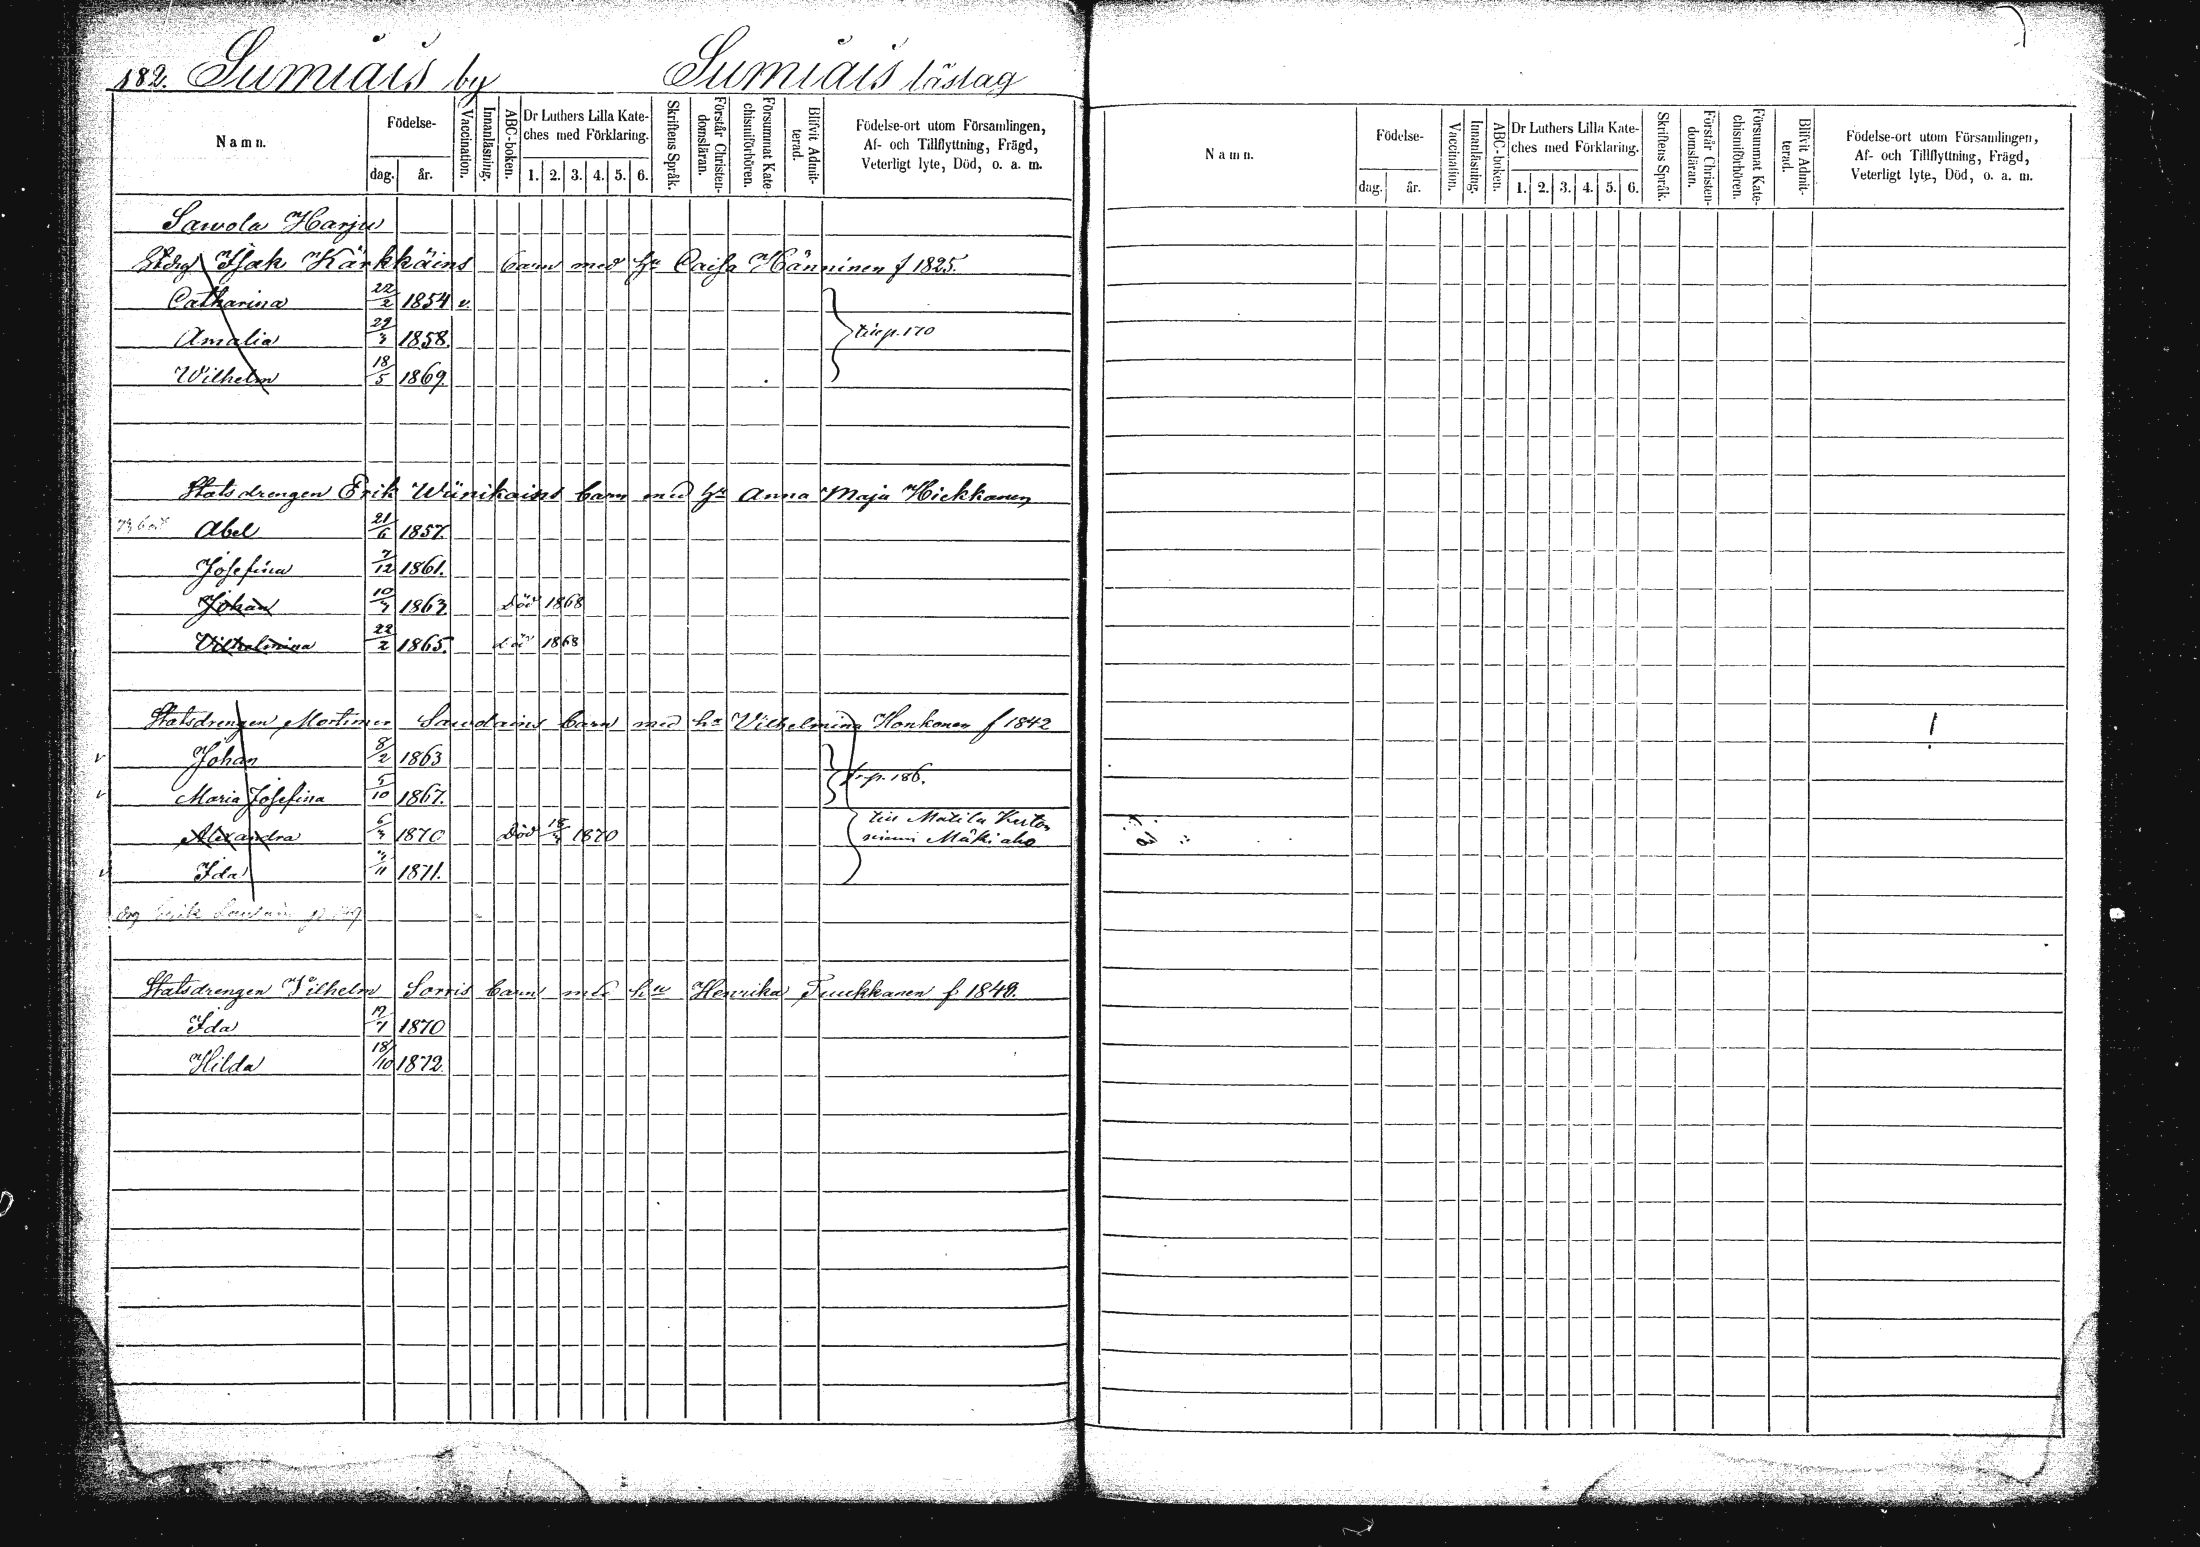 182. Sumiais by Sumiais läslag
Namn. Födelse- dag. år. Vaccination. Innanläsning. ABC-boken. Dr Luthers Lilla Kate-ches med Förklaring. 1. 2. 3. 4. 5. 6. Skriftens Språk. Förstår Christen-domsläran. Försummat Kate-chismiförhören. Blifvit Admit-terad. Födelse-ort utom Församlingen, Af- och Tillflyttning, Frägd, Veterligt lyte, Död, o. a. m.
Sawola Harju
Isak Kärkkäins barn med hu Caisa Hänninen f 1825.
Catharina 22/2 1854 v.
Amalia 1858. p. 170
Wilhelm 18/5 1869
Statsdrengen Erik Wiinikains barn med hu Anna Maja Hiekkanen
Abel 21/6 1857.
Josefina 7/12 1861.
Johan 1863 Död 1868
Vilhelmina 22/2 1865. död 1868
Statsdrengen Mortimer Sawolains barn med hu Vilhelmina Honkonen f 1842
v Johan 8/2 1863
v Maria Josefina 5/10 1867. p. 186.
Alexandra 1870 Död 1870 Mäkiaho
v Ida 1871.
Statsdrengen Vilhelm Sorris barn med hu Henrika f 1840.
Ida 1870
Hilda 18/10 1872.
Namn. Födelse- dag. år. Vaccination. Innanläsning. ABC-boken. Dr Luthers Lilla Kate-ches med Förklaring. 1. 2. 3. 4. 5. 6. Skriftens Språk. Förstår Christen-domsläran. Försummat Kate-chismiförhören. Blifvit Admit-terad. Födelse-ort utom Församlingen, Af- och Tillflyttning, Frägd, Veterligt lyte, Död, o. a. m.